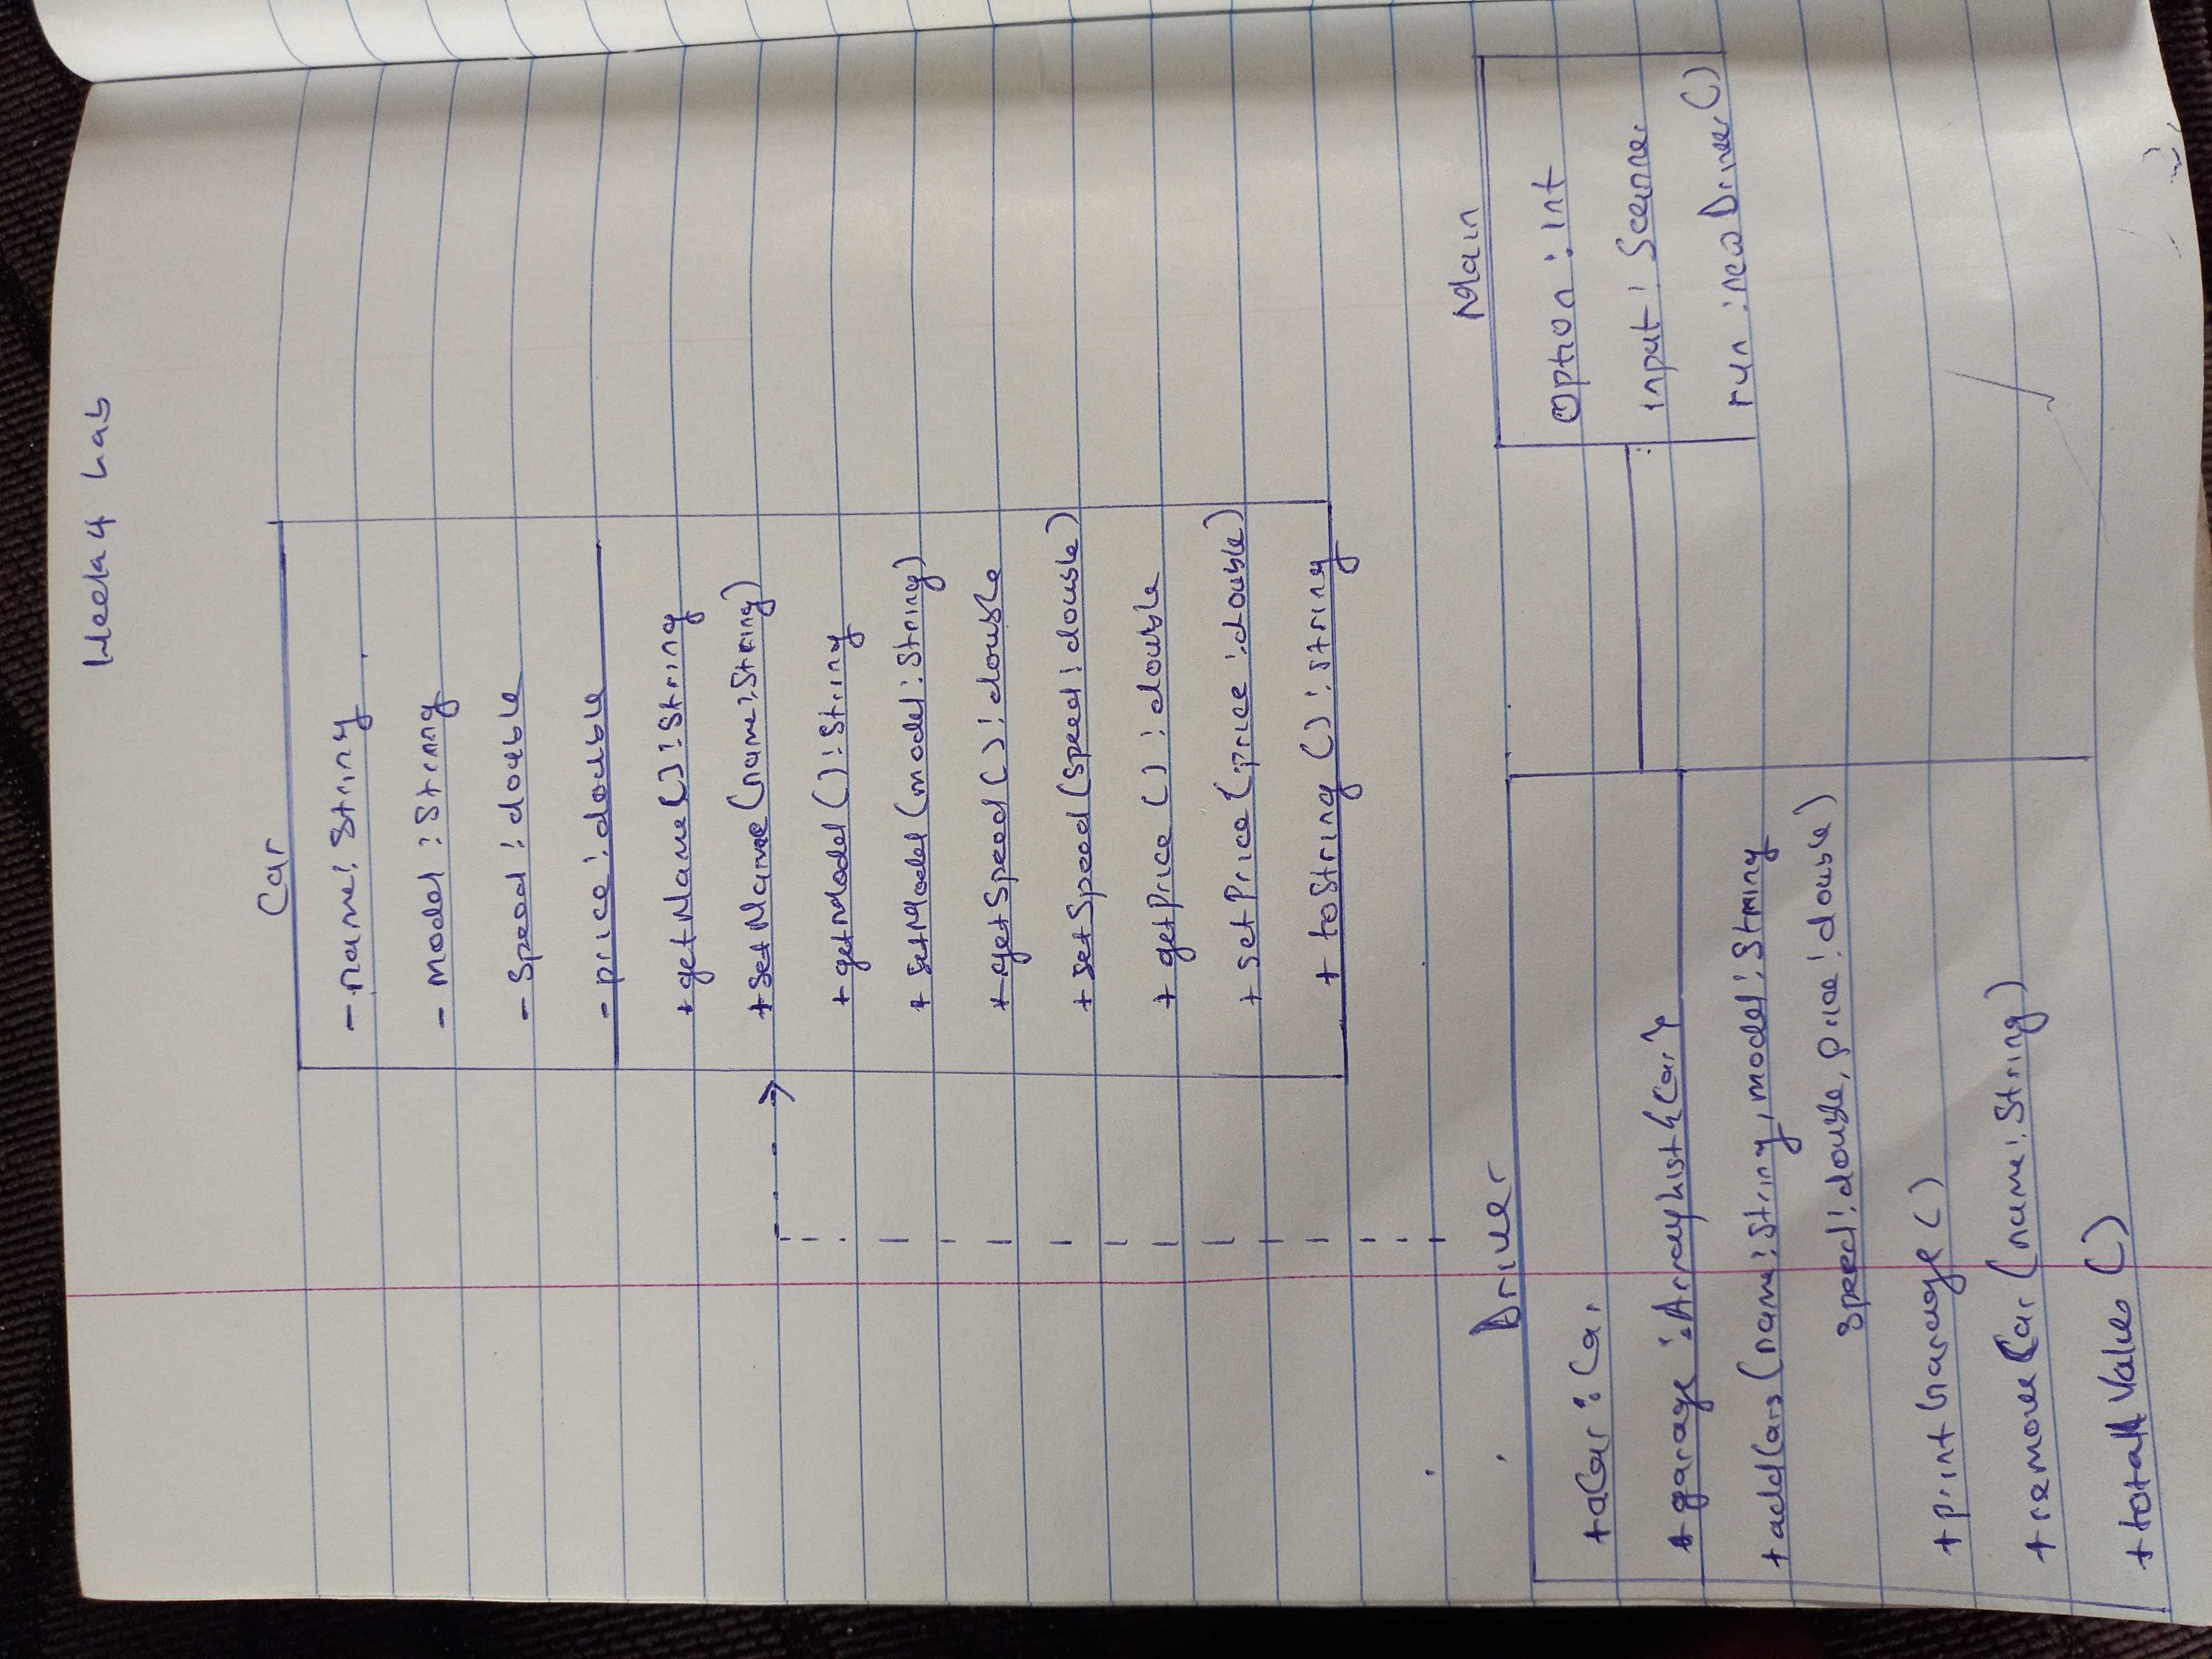 Week 4 Lab
Car
- name: String
- model: String
- Speed: double
- price: double
+ getName(): String
+ setName(name: String)
+ getModel(): String
+ setModel(model: String)
+ getSpeed(): double
+ setSpeed(speed: double)
+ getPrice(): double
+ setPrice(price: double)
+ toString(): string
Driver
+ aCar: Car
+ garage: ArrayList{Car}
+ addCars(name: String, model: String
speed: double, price: double)
+ printGarage()
+ removeCar(name: String)
+ totalValue()
Main
Option: int
input: Scanner
run: new Driver()